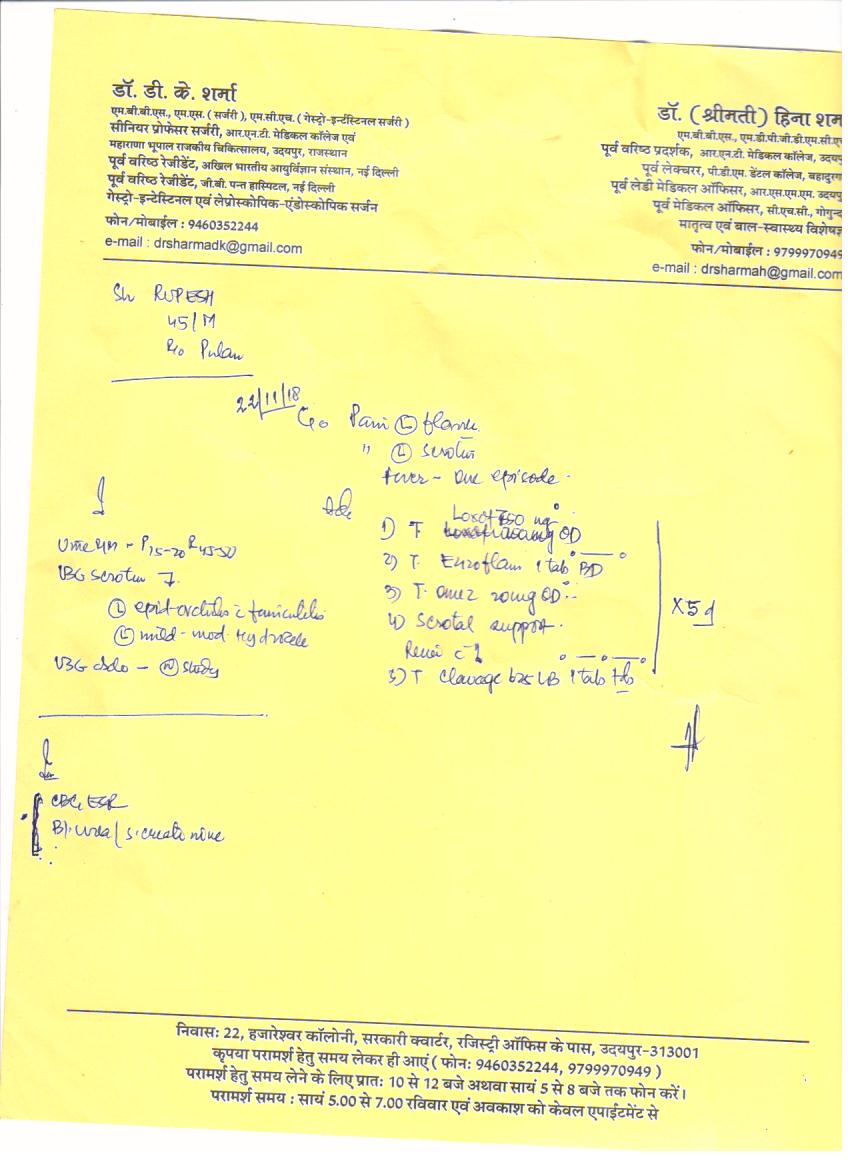 डॉ. डी. के. शर्मा
एम.बी.बी.एस., एम.एस. ( सर्जरी ), एम.सी.एच. ( गेस्ट्रो-इन्टेंस्टिनल सर्जरी )
सीनियर प्रोफेसर सर्जरी, आर.एन.टी. मेडिकल कॉलेज एवं
महाराणा भूपाल राजकीय चिकित्सालय, उदयपुर, राजस्थान
पूर्व वरिष्ठ रेजीडेंट, अखिल भारतीय आयुर्विज्ञान संस्थान, नई दिल्ली
पूर्व वरिष्ठ रेजीडेंट, जी.बी. पन्त हास्पिटल, नई दिल्ली
गेस्ट्रो-इन्टेस्टिनल एवं लेप्रोस्कोपिक-एंडोस्कोपिक सर्जन
फोन/मोबाईल : 9460352244
e-mail : drsharmadk@gmail.com
डॉ. (श्रीमती) हिना शर्म
एम.बी.बी.एस., एम.डी.पी.जी.डी.एम.सी.ए
पूर्व वरिष्ठ प्रदर्शक, आर.एन.टी. मेडिकल कॉलेज, उदयपु
पूर्व लेक्चरर, पी.डी.एम. डेंटल कॉलेज, बहादुरग
पूर्व लेडी मेडिकल ऑफिसर, आर.एस.एम.एम. उदयपु
पूर्व मेडिकल ऑफिसर, सी.एच.सी., गोगुन्द
मातृत्व एवं बाल-स्वास्थ्य विशेषज्ञ
फोन/मोबाईल : 9799970949
e-mail : drsharmah@gmail.com
Sh RUPESH
45/M
R/o
22/11/18
C/o Pain (L) flank
" (L) scrotum
Fever - One episode
Urine
USG scrotum
(L) epid-orchitis c funiculitis
(L) mild-mod Hydrocele
USG abdo - (N) study
Adv
1) T OD
2) T. Enzoflam 1 tab BD
3) T. Omez 20mg OD
4) Scrotal support
5) T 625 1 tab
X 5d
CBC, ESR
Bl. urea / s. creatinine
निवासः 22, हजारेश्वर कॉलोनी, सरकारी क्वार्टर, रजिस्ट्री ऑफिस के पास, उदयपुर-313001
कृपया परामर्श हेतु समय लेकर ही आएं ( फोनः 9460352244, 9799970949 )
परामर्श हेतु समय लेने के लिए प्रातः 10 से 12 बजे अथवा सायं 5 से 8 बजे तक फोन करें।
परामर्श समय : सायं 5.00 से 7.00 रविवार एवं अवकाश को केवल एपाईंटमेंट से